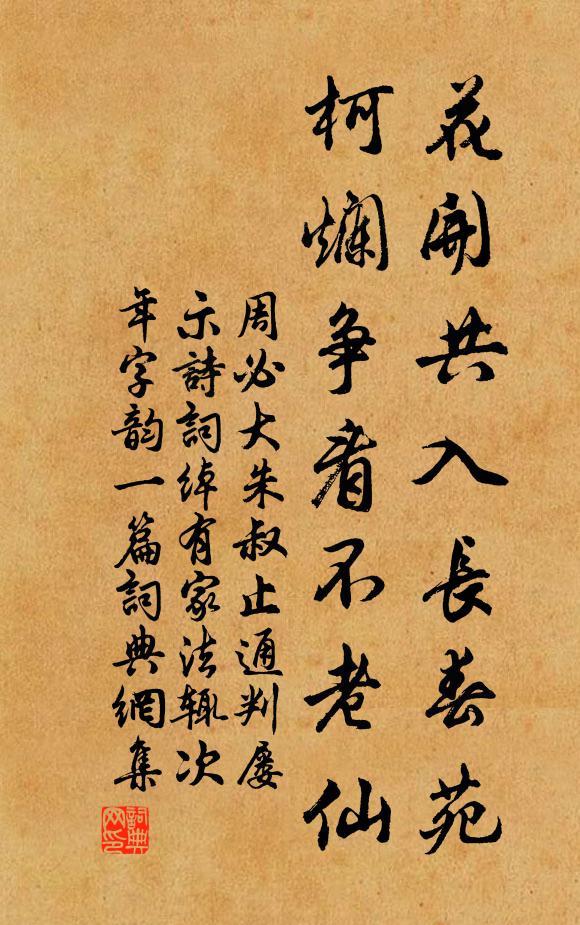 花開共入長春苑
柯爛爭看不老仙
周必大朱叔止通判屡
示詩詞綽有家法輒次
年字韵一篇詞典網集
詞典网印